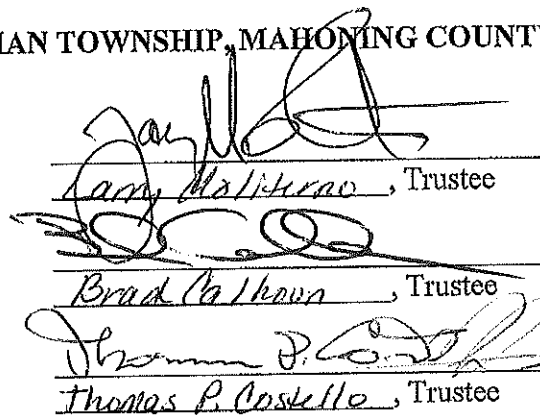 MAN TOWNSHIP, MAHONING COUNT
Larry Moliterno, Trustee
Brad Calhoun, Trustee
Thomas P. Costello, Trustee